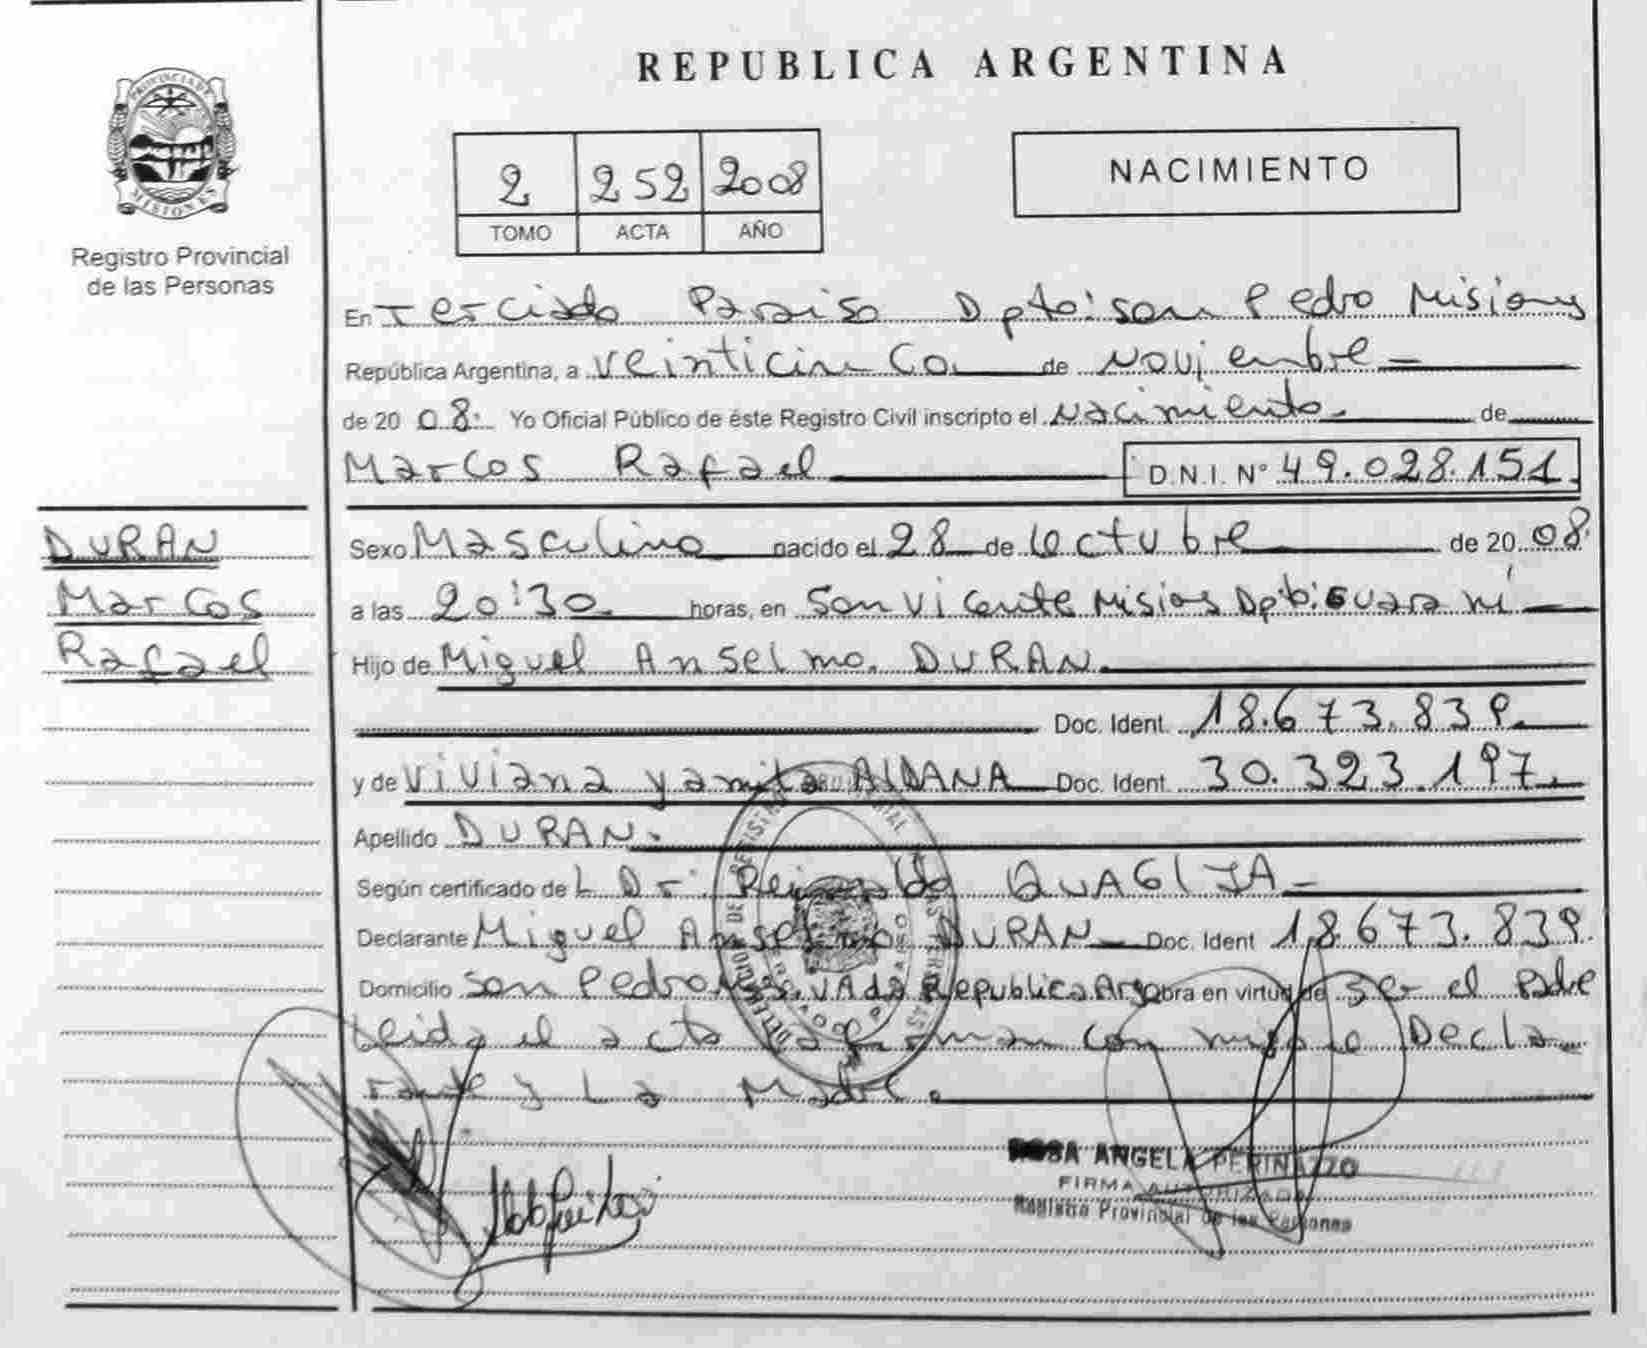 PROVINCIA DE
MISIONES
Registro Provincial
de las Personas
REPUBLICA ARGENTINA
2 252 2008
TOMO ACTA AÑO
NACIMIENTO
En Terciado Paraiso Dpto: san Pedro Misiones
República Argentina, a veinticinco de Noviembre
de 20 08. Yo Oficial Público de éste Registro Civil inscripto el Nacimiento de
Marcos Rafael D.N.I. Nº 49.028.151
DURAN
Marcos
Rafael
Sexo Masculino nacido el 28 de octubre de 20 08
a las 20:30 horas, en San Vicente Misiones Dpto: Guaraní
Hijo de Miguel Anselmo DURAN
Doc. Ident. 18.673.839
y de Viviana Yamila ALDANA Doc. Ident. 30.323.197
Apellido DURAN.
Según certificado de L Dr. Reinaldo QUAGLIA
Declarante Miguel Anselmo DURAN Doc. Ident 18.673.839
Domicilio San Pedro Republica Arg obra en virtud de ser el Padre
Leida el acta la firman con migo el Decla
rante y La Madre.
ROSA ANGELA PERINAZZO
FIRMA AUTORIZADA
Registro Provincial de las Personas